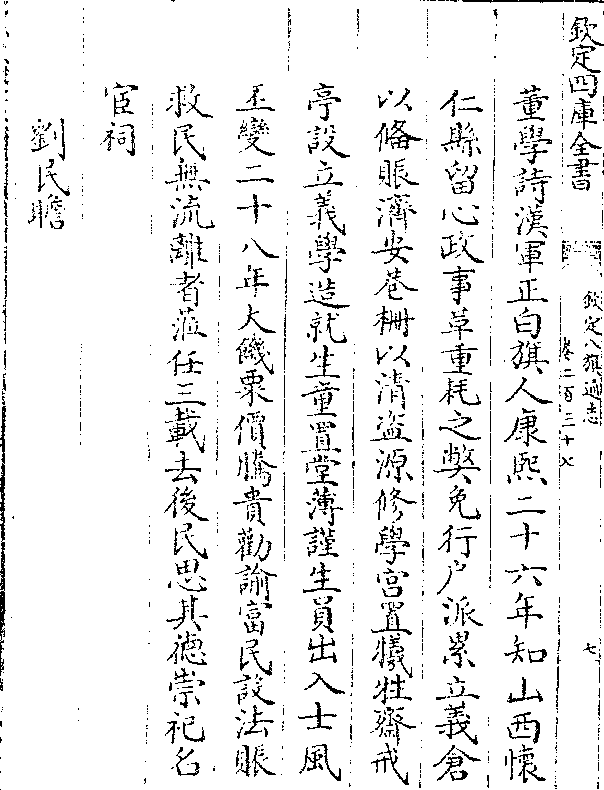 欽定四庫全書
欽定八旗通志
卷二百三十七
七
董學詩漢軍正白旗人康熙二十六年知山西懷
仁縣留心政事革重耗之弊免行户派累立義倉
以備賑濟安巷柵以清盜源修學宮置犧牲齋戒
亭設立義學造就生童置堂薄謹生員出入士風
丕變二十八年大饑粟價騰貴勸諭富民設法賑
救民無流離者蒞任三載去後民思其德崇祀名
宦祠
劉民瞻